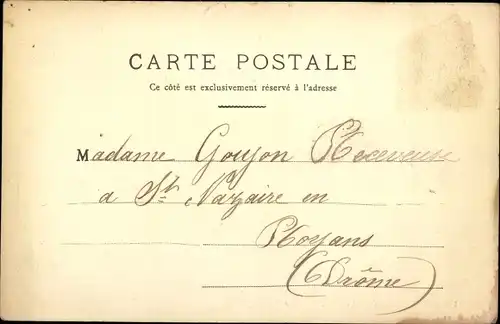 CARTE POSTALE
Ce côté est exclusivement réservé à l'adresse
Madame Goujon Receveuse
a St Nazaire en
Royans
(Drôme)